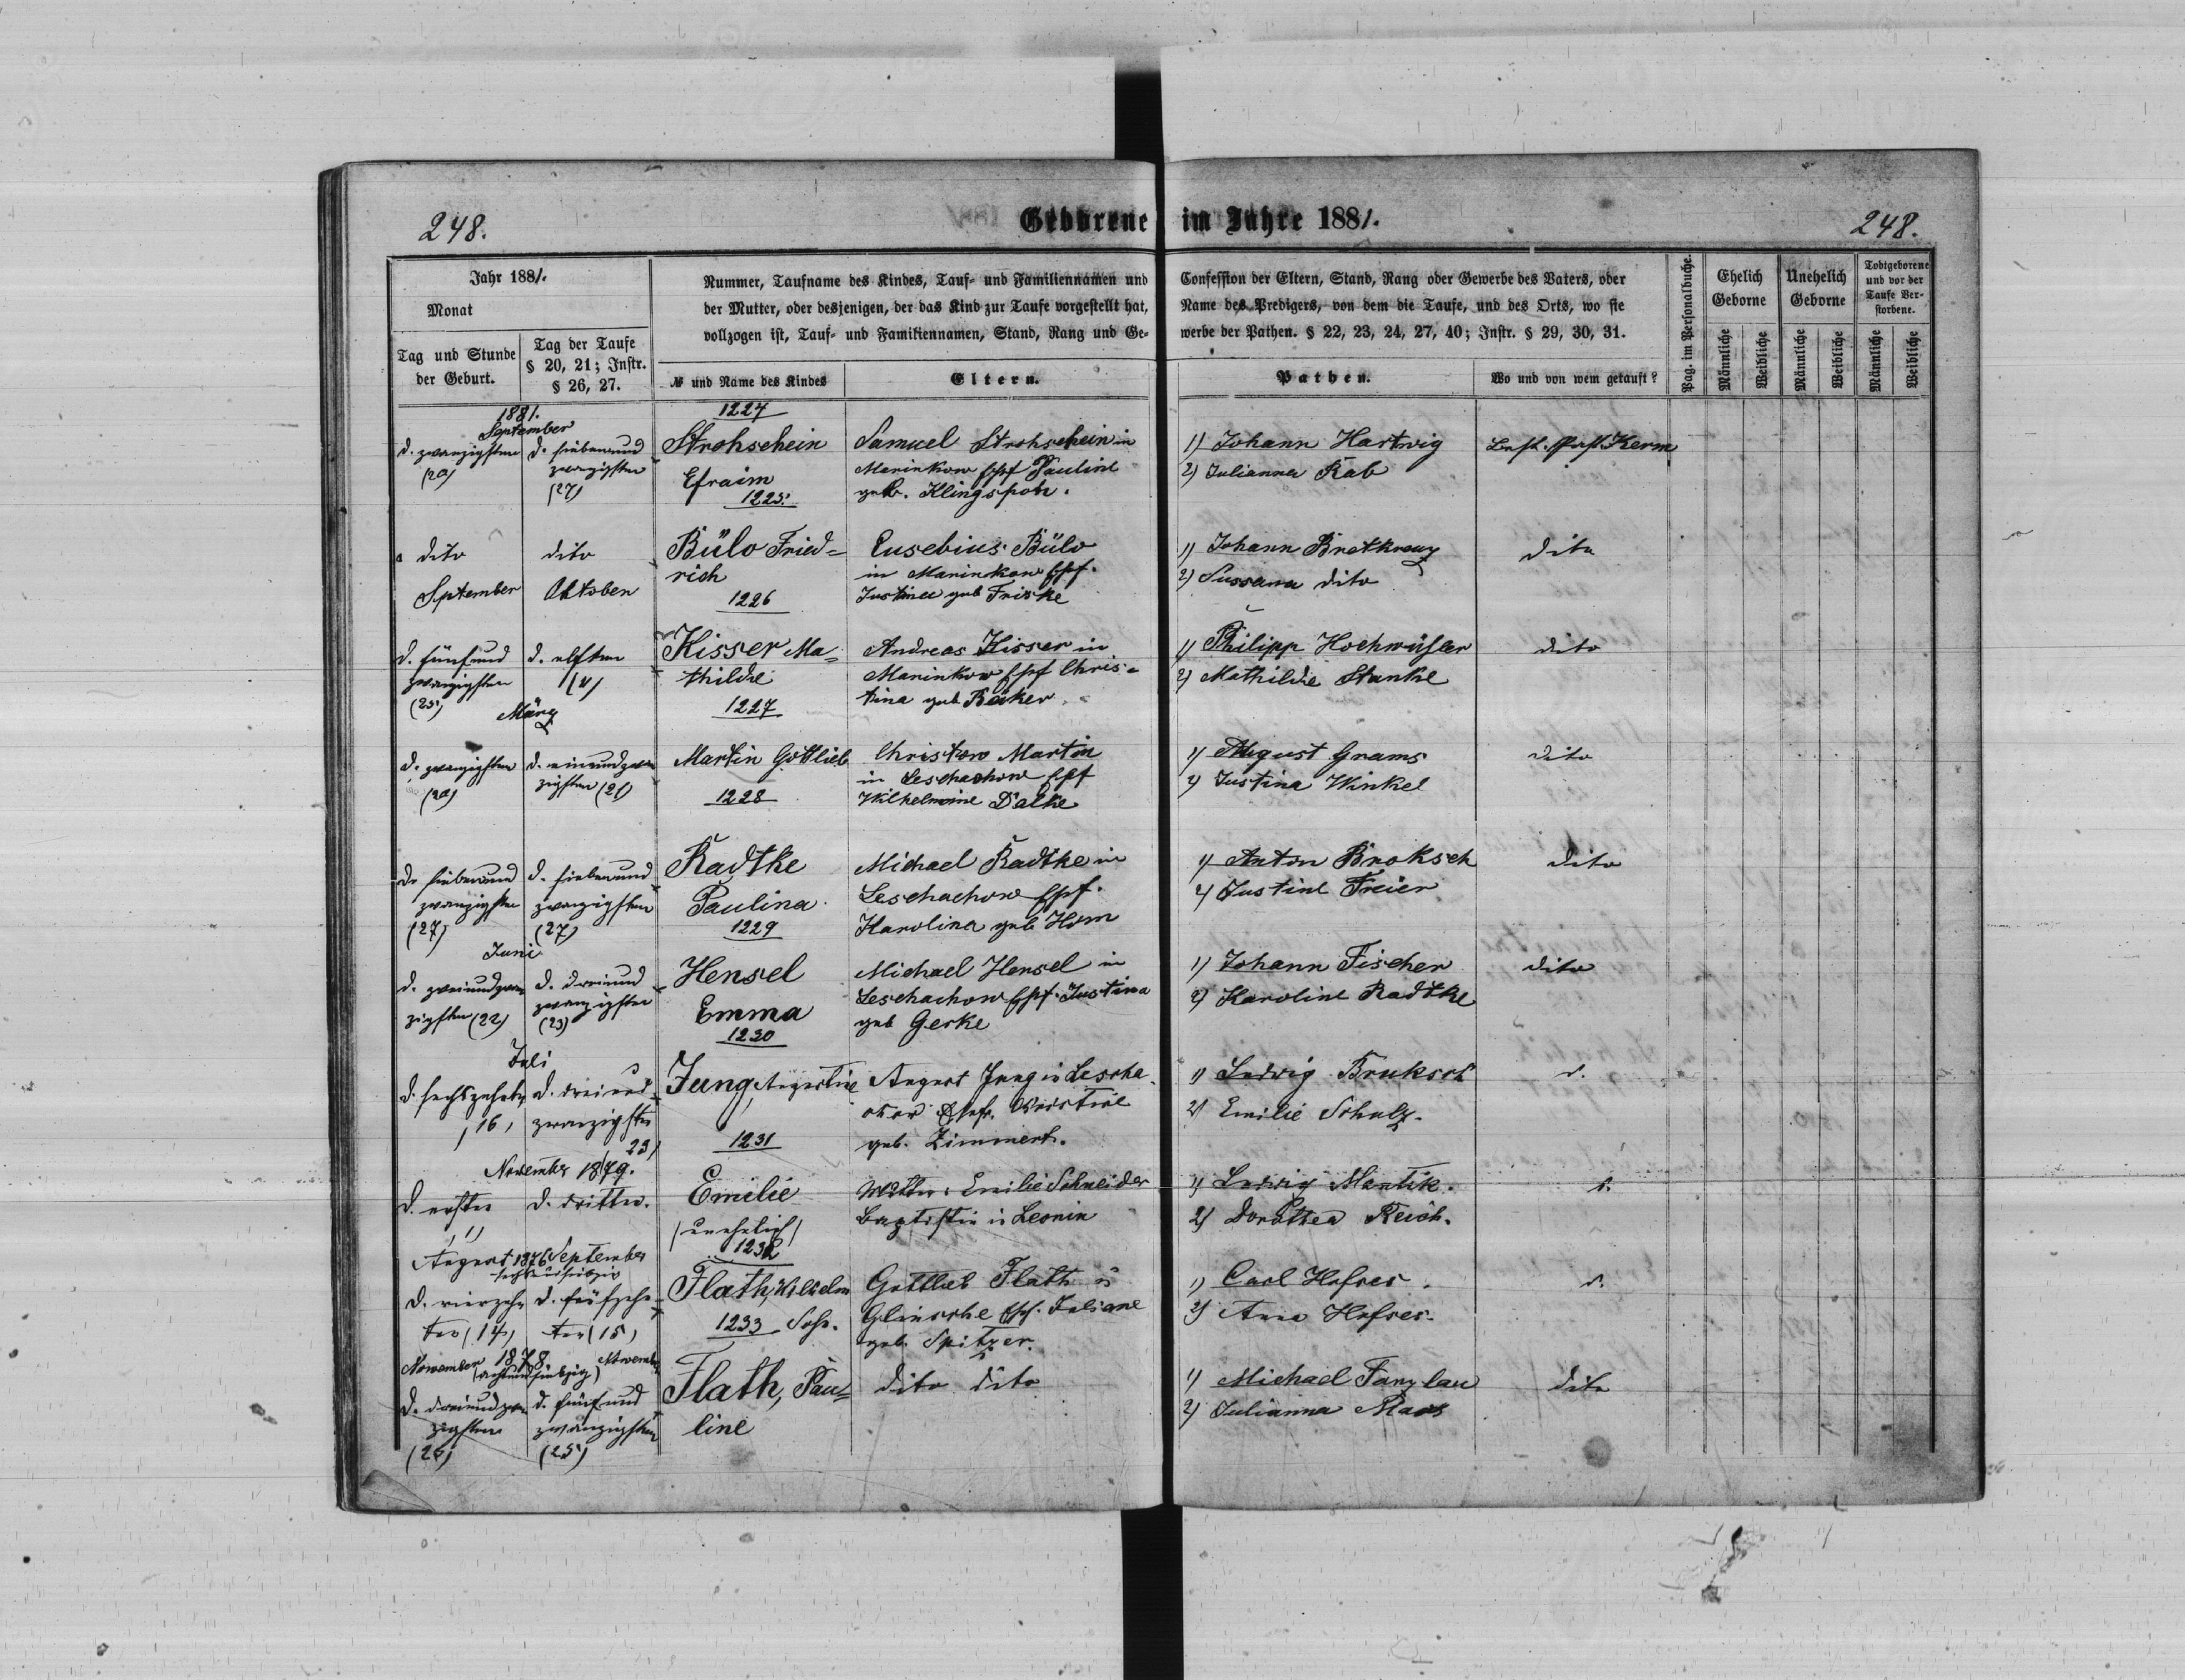 248.
Geborene im Jahre 1881.
248.
Jahr 1881.
Monat
Tag und Stunde der Geburt.
Tag der Taufe § 20, 21; Instr. § 26, 27.
Nummer, Taufname des Kindes, Tauf- und Familiennamen und
der Mutter, oder desjenigen, der das Kind zur Taufe vorgestellt hat,
vollzogen ist, Tauf- und Familiennamen, Stand, Rang und Ge-
№ und Name des Kindes
Eltern.
Confession der Eltern, Stand, Rang oder Gewerbe des Vaters, oder
Name des Predigers, von dem die Taufe, und des Orts, wo sie
werbe der Pathen. § 22, 23, 24, 27, 40; Instr. § 29, 30, 31.
Pathen.
Wo und von wem getauft?
Pag. im Personalbuche.
Ehelich Geborne
Unehelich Geborne
Todtgeborene und vor der Taufe Verstorbene.
Männliche
Weibliche
Männliche
Weibliche
Männliche
Weibliche
1881.
September
d. zwanzigsten
(20)
d. siebenund
zwanzigsten
(27)
1224
Strohschein
Efraim
Samuel Strohschein in
Marinkow Ehf Pauline
geb. Klingspohn.
1) Johann Hartwig
2) Julianna Rab
Past. Kerm
1225.
dito
dito
Bülo Fried=
rich
Eusebius Bülo
in Marinkow Ehf.
Justine geb Friske
1) Johann Bretkreuz
2) Sussana dito
dito
September
Oktober
1226
d. fünfund
zwanzigsten
(25)
d. elften
(11)
Kisser Ma=
thilde
Andreas Kisser in
Marinkow Ehf Chris=
tina geb Beker
1) Philipp
2) Mathilde Stanke
dito
März
1227
d. zwanzigsten
(20)
d. einundzwan
zigsten (21)
Martin Gottlieb
Christow Martin
in Leschachow Ehf
Wilhelmine Dalke
1) August Grams
2) Justina Winkel
dito
1228
d. siebenund
zwanzigsten
(27)
d. siebenund
zwanzigsten
(27)
Radtke
Paulina
Michael Radtke in
Leschachow Ehf.
Karolina geb Horn
1) Anton Broksch
2) Justine Freier
dito
Juni
1229
d. zweiundzwan
zigsten (22)
d. dreiund
zwanzigsten
(23)
Hensel
Emma
Michael Hensel in
Leschachow Ehf. Justina
geb Gerke
1) Johann Fischer
2) Karoline Radtke
dito
Juli
1230
d. sechszehnten
(16)
d. dreiund
zwanzigsten
23)
Jung, Augustine
August Jung in Lescha
chow Ehefr. Christine
geb. Zimmert.
1) Ludwig Bruksch
2) Emilie Schulz.
d.
November 1879.
1231
d. ersten
(1)
d. dritten.
Emilie
(unehelich)
Mutter: Emilie Schneider
Baptistin in Leonin
1) Ludwig Mantik.
2) Dorothea Reich.
d.
August 1876 September
sechsundsiebzig
1232
d. vierzehn
ten (14)
d. fünfzehn
ten (15)
Flath, Wilhelm
Sohn.
Gottlieb Flath in
Glinsche Ehf. Juliane
geb. Spitzer.
1) Carl Hofses.
2) Anna Hofses.
d.
November 1878 November
(achtundsiebzig)
1233
d. dreiundzwan
zigsten
d. fünfund
zwanzigsten
(25)
Flath, Pau=
line
dito dito
1) Michael Fanzlau
2) Julianna Maas
dito